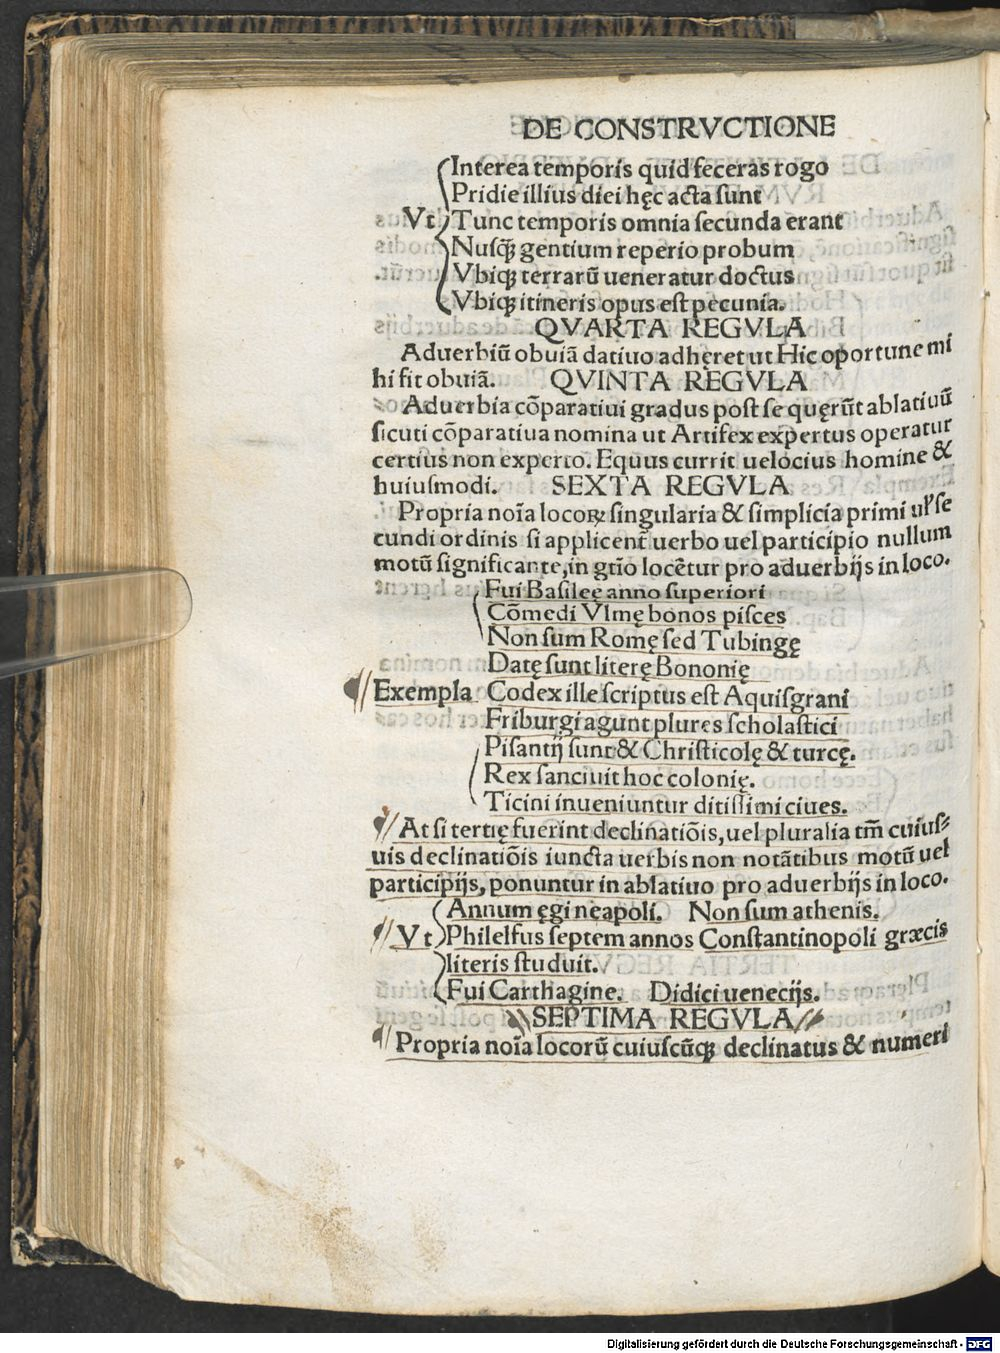 DE CONSTRVCTIONE
Interea temporis quid feceras rogo
Pridie illius diei hęc acta sunt
Vt Tunc temporis omnia secunda erant
Nusq̃ gentium reperio probum
Vbiqꝫ terrarū ueneratur doctus
Vbiqꝫ itineris opus est pecunia.
QVARTA REGVLA
Aduerbiū obuiā datiuo adhęret ut Hic oportune mi
hi fit obuiā. QVINTA REGVLA
Aduerbia cōparatiui gradus post se quęrūt ablatiuū
sicuti cōparatiua nomina ut Artifex expertus operatur
certius non experto. Equus currit uelocius homine &
huiusmodi. SEXTA REGVLA
Propria noīa locoꝝ singularia & simplicia primi uł se
cundi ordinis si applicent̄ uerbo uel participio nullum
motū significante, in gtīo locētur pro aduerbijs in loco.
Fui Basileę anno superiori
Cōmedi Vlmę bonos pisces
Non sum Romę sed Tubingę
Datę sunt literę Bononię
Exempla Codex ille scriptus est Aquisgrani
Friburgi agunt plures scholastici
Pisantij sunt & Christicolę & turcę.
Rex sanciuit hoc colonię.
Ticini inueniuntur ditissimi ciues.
At si tertię fuerint declinatiōis, uel pluralia tm̄ cuius⸗
uis declinatiōis iuncta uerbis non notātibus motū uel
participijs, ponuntur in ablatiuo pro aduerbijs in loco.
Annum ęgi neapoli. Non sum athenis.
Vt Philelfus septem annos Constantinopoli græcis
literis studuit.
Fui Carthagine. Didici uenecijs.
SEPTIMA REGVLA
Propria noīa locorū cuiuscūqꝫ declinatus & numeri
Digitalisierung gefördert durch die Deutsche Forschungsgemeinschaft - DFG